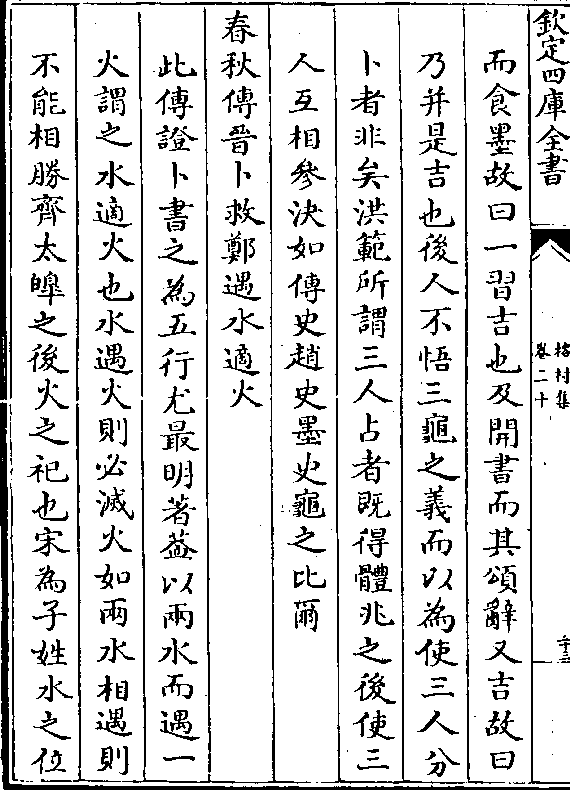 欽定四庫全書
榕村集
卷二十
而食墨故曰一習吉也及開書而其頌辭又吉故曰
乃并是吉也後人不悟三龜之義而以為使三人分
卜者非矣洪範所謂三人占者既得體兆之後使三
人互相參決如傳史趙史墨史龜之比爾
春秋傳晉卜救鄭遇水適火
此傳證卜書之為五行尤最明著葢以兩水而遇一
火謂之水適火也水遇火則必滅火如兩水相遇則
不能相勝齊太皥之後火之祀也宋為子姓水之位